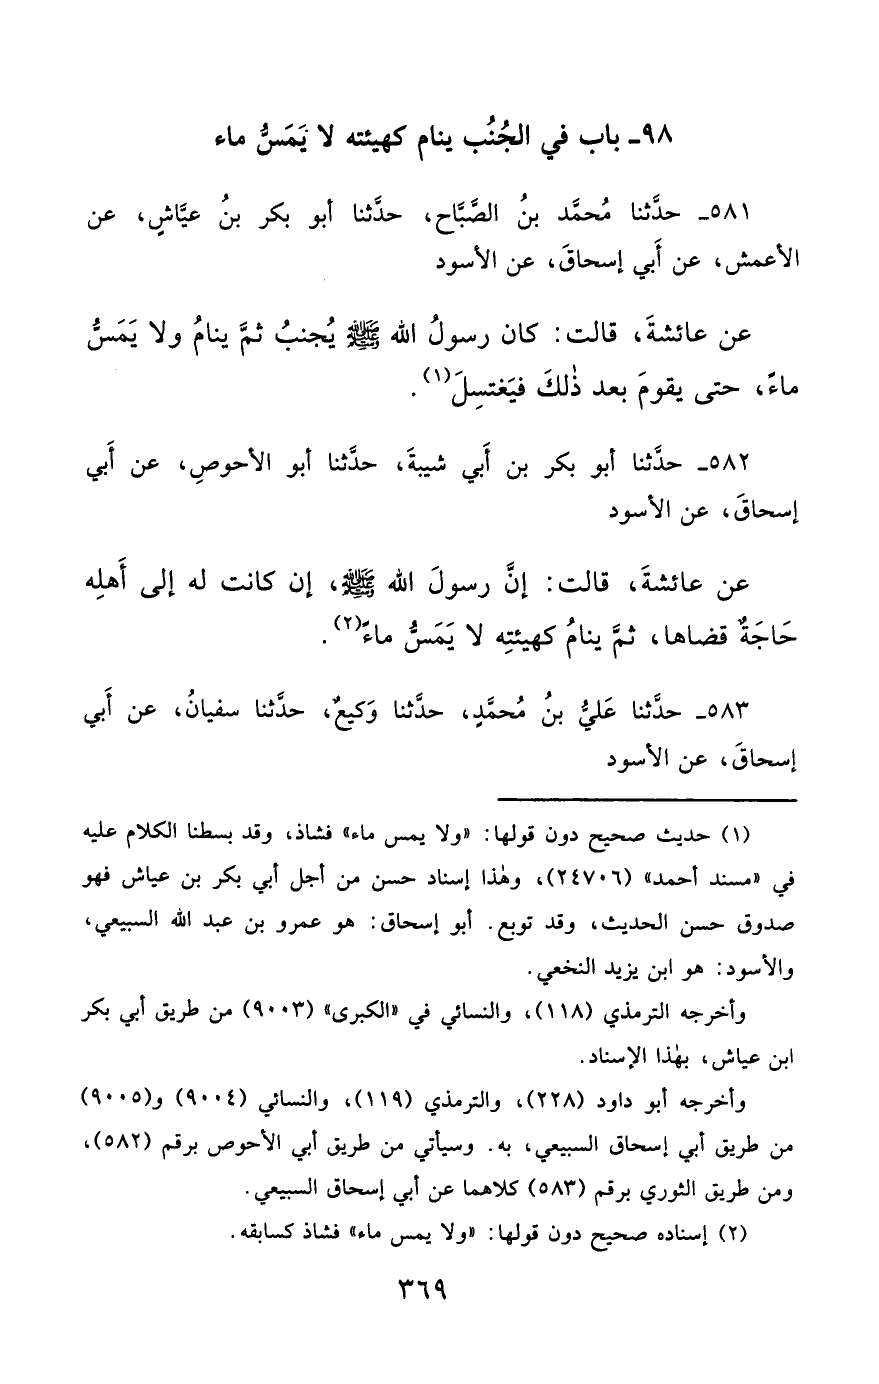 ٩٨ـ باب في الجُنُب ينام كهيئته لا يَمَسُّ ماء
٥٨١ـ حدَّثنا مُحمَّد بنُ الصَّبَّاح، حدَّثنا أبو بكر بنُ عيَّاشٍ، عن
الأعمش، عن أَبي إسحاقَ، عن الأسود
عن عائشةَ، قالت: كان رسولُ الله ﷺ يُجنبُ ثمَّ ينامُ ولا يَمَسُّ
ماءً، حتى يقومَ بعد ذٰلكَ فيَغتسِلَ(١).
٥٨٢ـ حدَّثنا أبو بكر بن أَبي شيبةَ، حدَّثنا أبو الأحوصِ، عن أَبي
إسحاقَ، عن الأسود
عن عائشةَ، قالت: إنَّ رسولَ الله ﷺ، إن كانت له إلى أَهلِه
حَاجَةٌ قضاها، ثمَّ ينامُ كهيئتِه لا يَمَسُّ ماءً(٢).
٥٨٣ـ حدَّثنا عَليُّ بنُ مُحمَّدٍ، حدَّثنا وَكيعٌ، حدَّثنا سفيانُ، عن أَبي
إسحاقَ، عن الأسود
(١) حديث صحيح دون قولها: «ولا يمس ماء» فشاذ، وقد بسطنا الكلام عليه
في «مسند أحمد» (٢٤٧٠٦)، وهٰذا إسناد حسن من أجل أبي بكر بن عياش فهو
صدوق حسن الحديث، وقد توبع. أبو إسحاق: هو عمرو بن عبد الله السبيعي،
والأسود: هو ابن يزيد النخعي.
وأخرجه الترمذي (١١٨)، والنسائي في «الكبرى» (٩٠٠٣) من طريق أبي بكر
ابن عياش، بهٰذا الإسناد.
وأخرجه أبو داود (٢٢٨)، والترمذي (١١٩)، والنسائي (٩٠٠٤) و(٩٠٠٥)
من طريق أبي إسحاق السبيعي، به. وسيأتي من طريق أبي الأحوص برقم (٥٨٢)،
ومن طريق الثوري برقم (٥٨٣) كلاهما عن أبي إسحاق السبيعي.
(٢) إسناده صحيح دون قولها: «ولا يمس ماء» فشاذ كسابقه.
٣٦٩